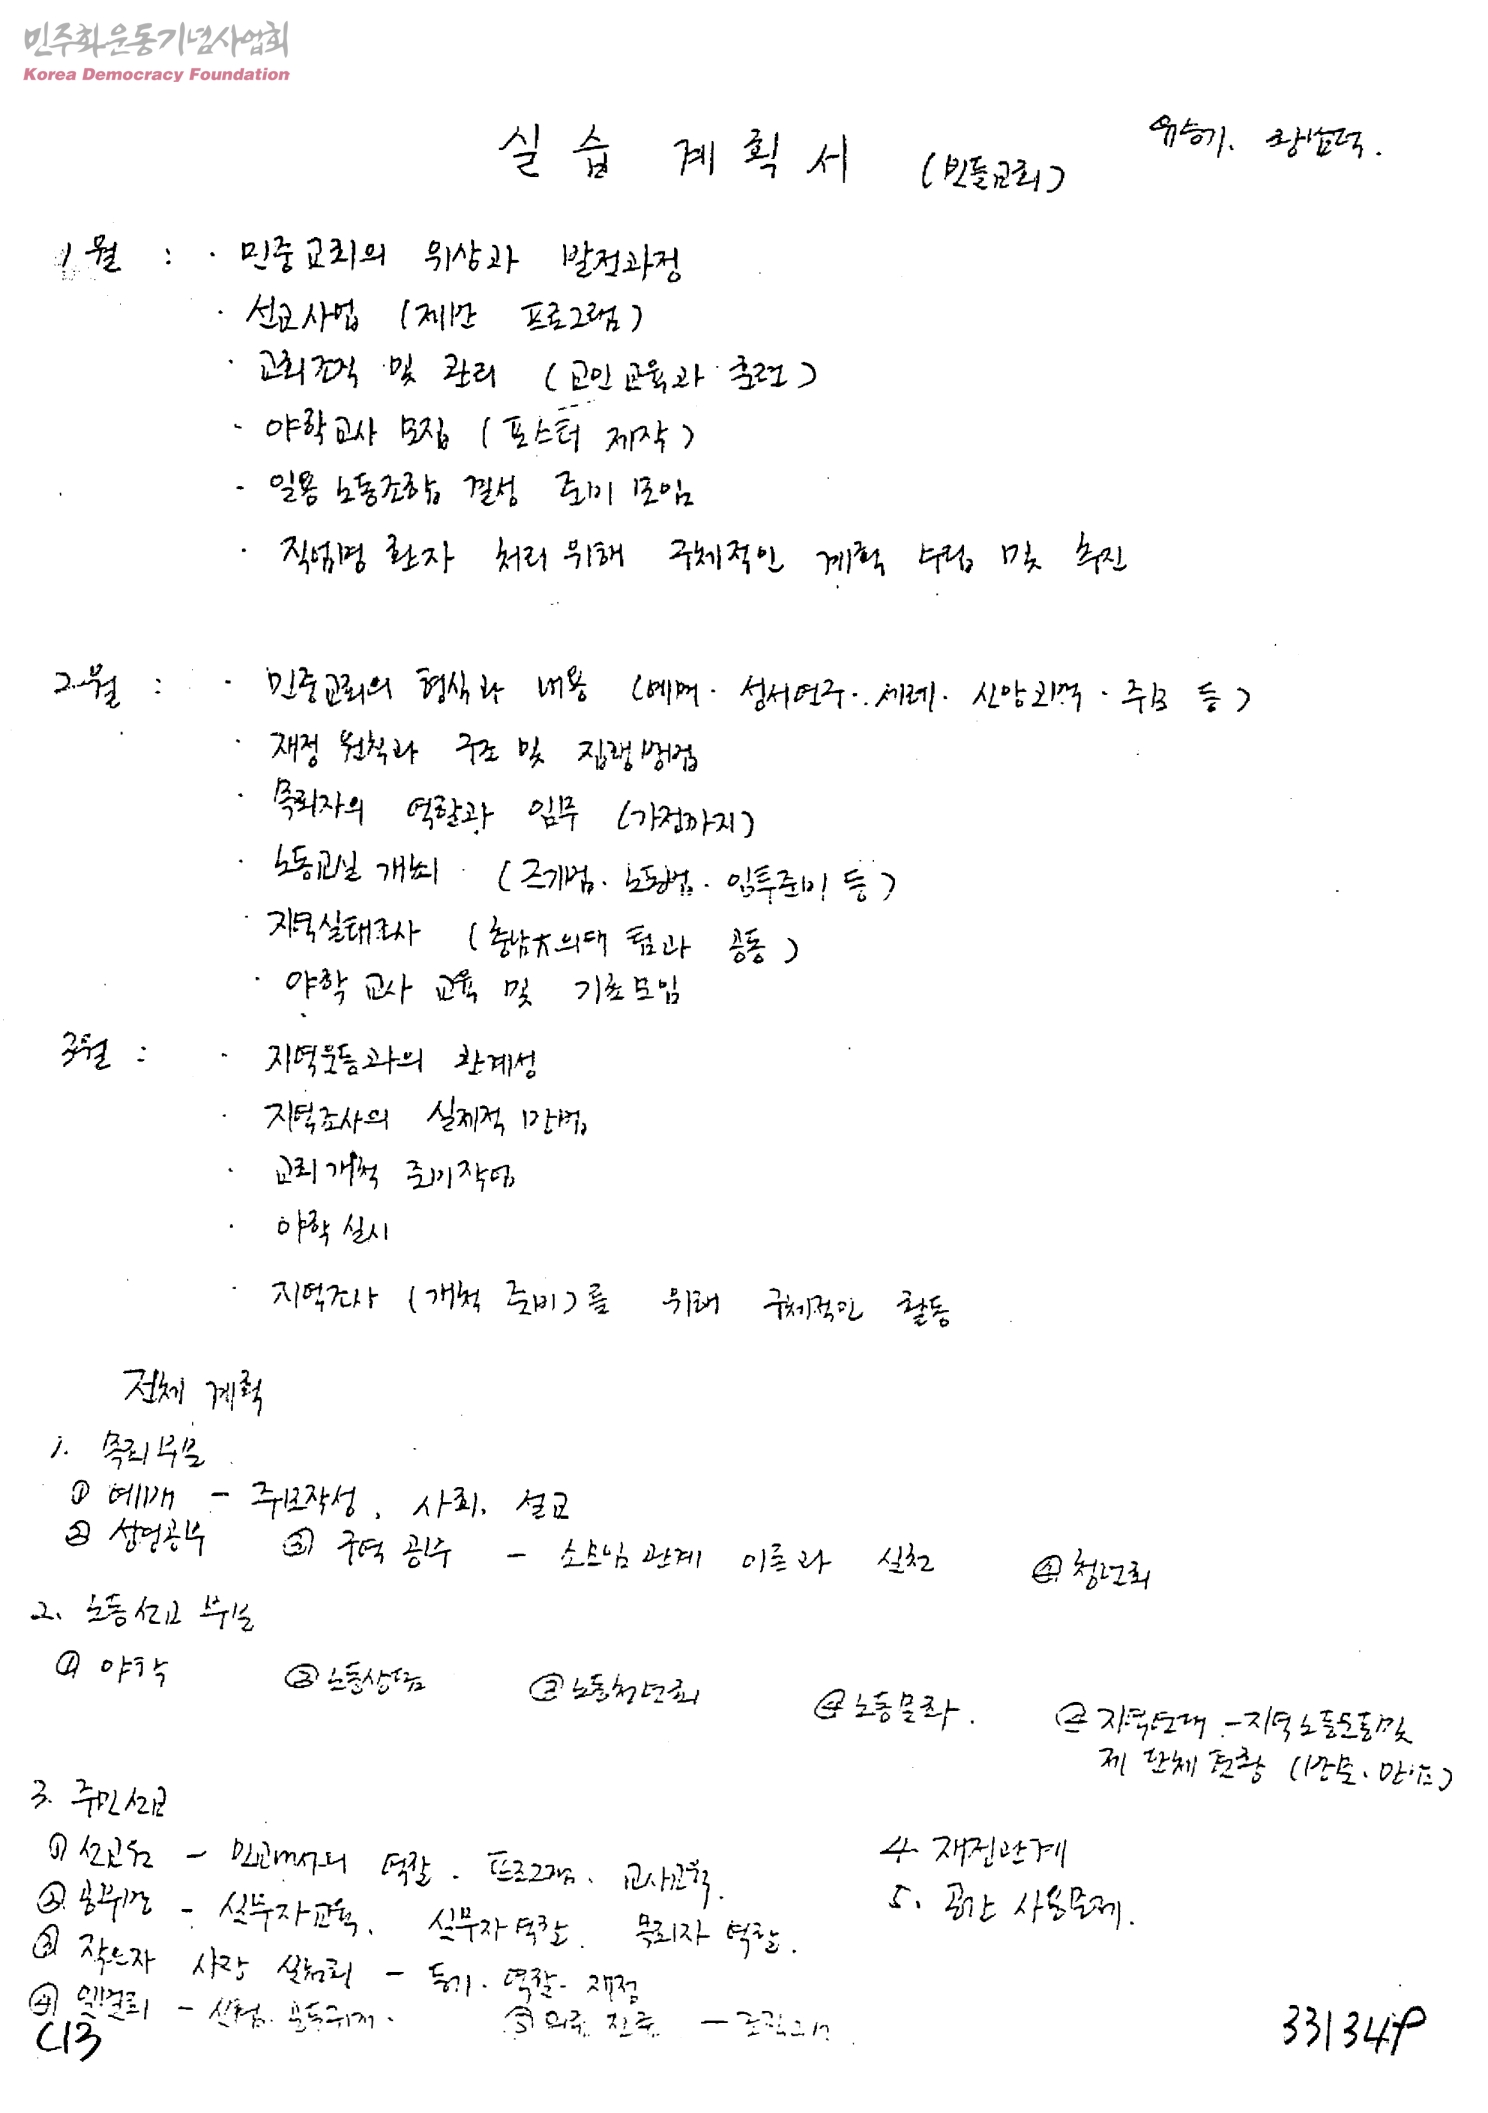 민주화운동기념사업회
Korea Democracy Foundation
실습 계획서 (빈들교회)
유승기.
1월 : · 민중교회의 위상과 발전과정
· 선교사업 (제반 프로그램)
· 교회조직 및 관리 (교인교육과 훈련)
· 야학교사 모집 (포스터 제작)
· 일용노동조합 결성 준비모임
· 직업병 환자 처리 위해 구체적인 계획 수립 및 추진
2월 : · 민중교회의 형식과 내용 (예배 · 성서연구 · 세례 · 신앙고백 · 주보 등)
· 재정 원칙과 구조 및 집행방법
· 목회자의 역할과 임무 (가정까지)
· 노동교실 개최 (근기법 · 노동법 · 임투준비 등)
· 지역실태조사 (충남大의대 팀과 공동)
· 야학 교사 교육 및 기초모임
3월 : · 지역운동과의 관계성
· 지역조사의 실제적 방법
· 교회개척 준비작업
· 야학실시
· 지역조사 (개척 준비)를 위해 구체적인 활동
전체 계획
1. 목회부문
① 예배 - 주보작성, 사회, 설교
② 성경공부 ③ 구역공부 - 소모임관계 이론과 실천 ④ 청년회
2. 노동선교 부문
① 야학 ② 노동상담 ③ 노동청년회 ④ 노동문화. ⑤ 지역연대 - 지역노동운동및
제 단체 현황
3. 주민선교
① 선교원 - 역할. 프로그램. 교사교육.
4. 재정관계
② 공부방 - 실무자교육. 실무자역할. 목회자 역할.
5. 공간 사용문제.
③ 작은자 사랑 실천회 - 동기 · 역할 · 재정
④ - 신협. 공동구매. ⑤ 의료 진료 -
C13
331349